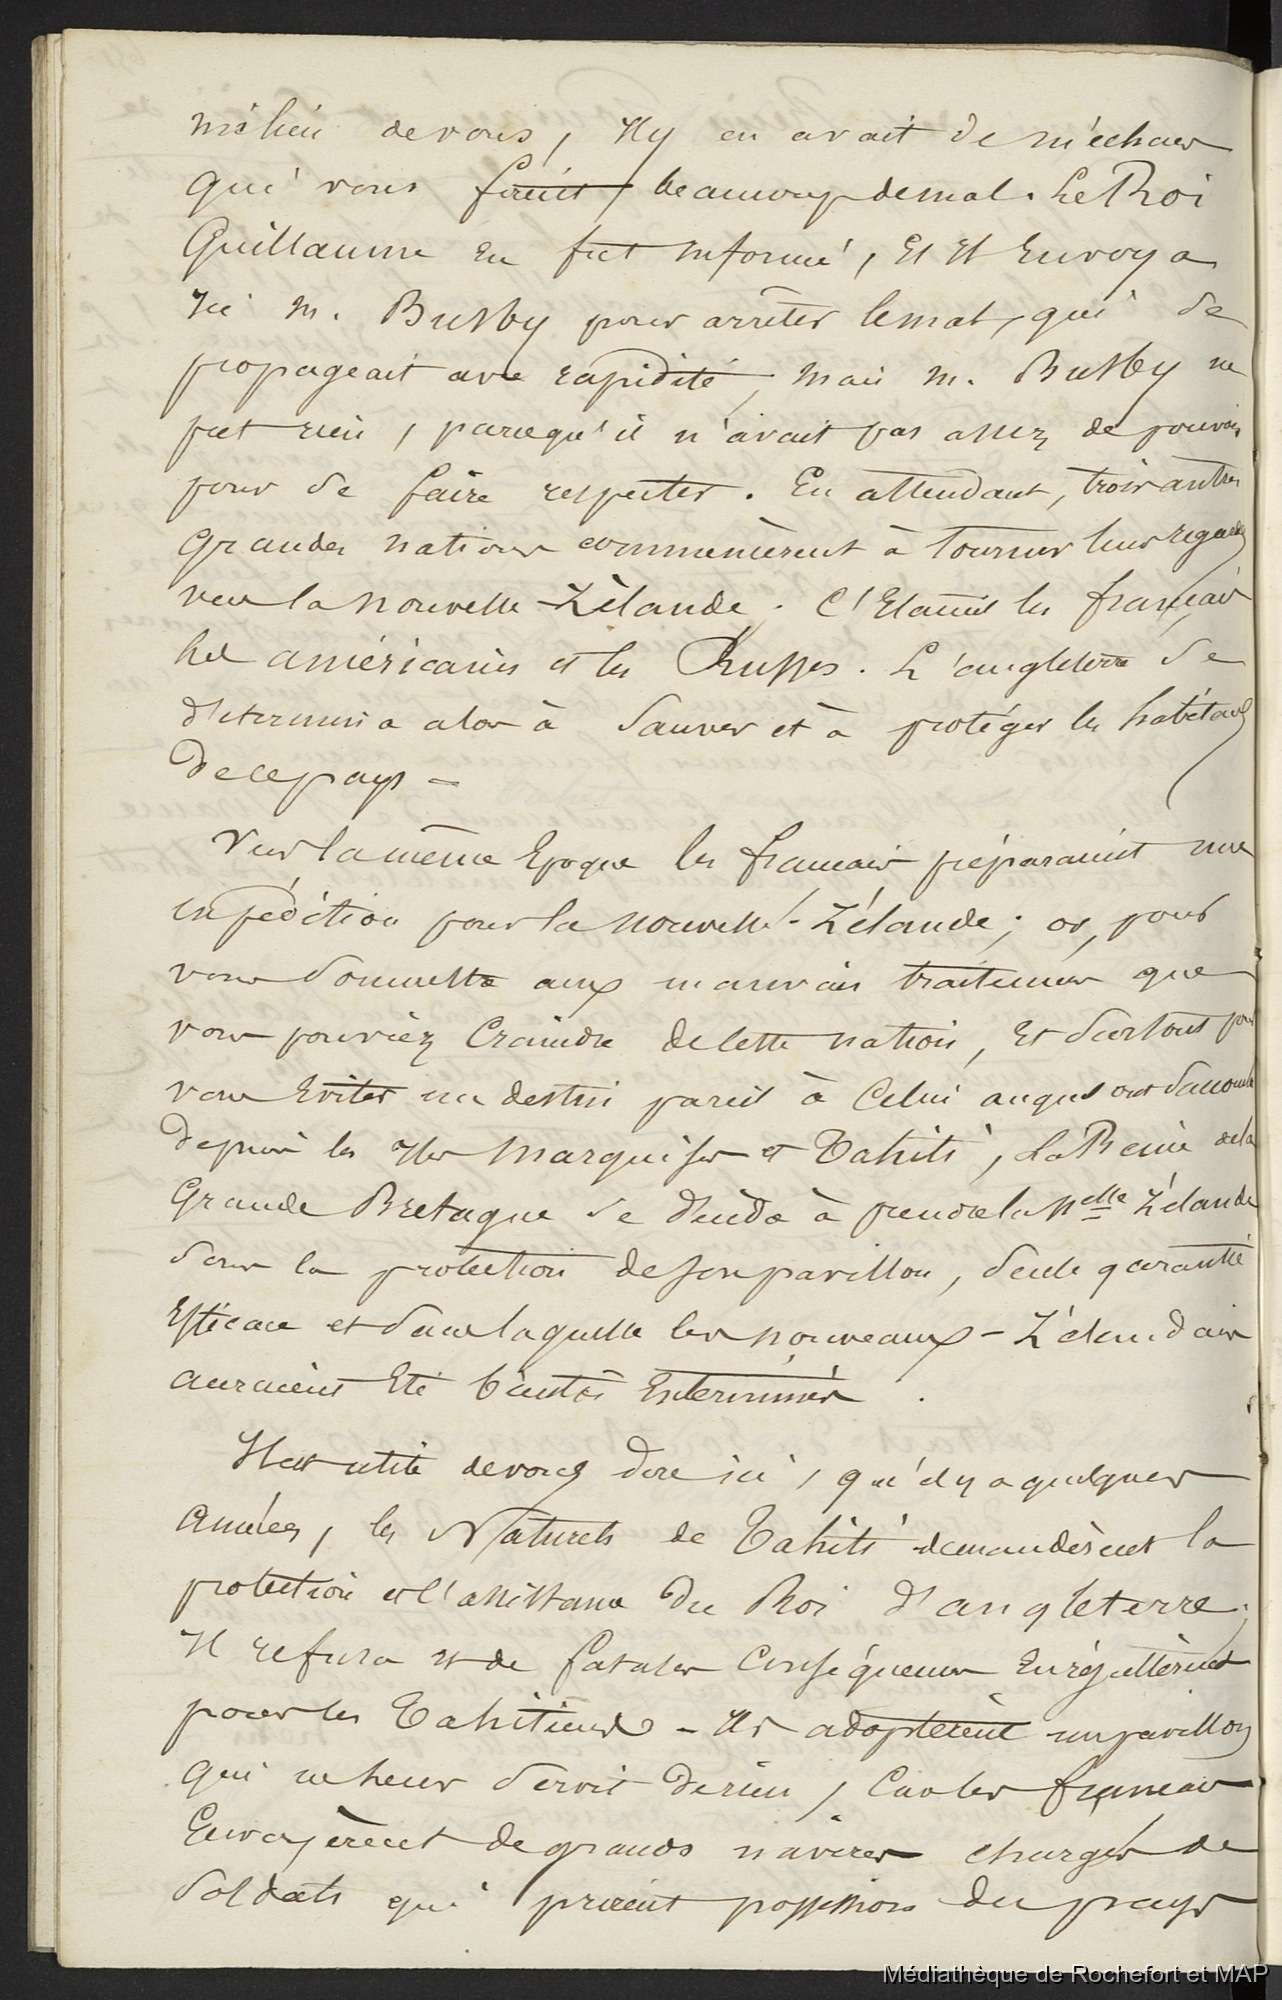 milieu de vous, Il y en avait de méchans
qui vous firent beaucoup de mal. Le Roi
Guillaume en fut informé, Et Il Envoya
Ici M. Busby pour arrêter le mal, qui se
propageait avec rapidité, mais M. Busby ne
fut rien, parcequ'il n'avait pas assez de pouvoir
pour se faire respecter. En attendant, trois autres
Grandes nations commencèrent à Tourner leurs regards
vers la nouvelle-Zèlande. C'Etaient les français
les américains et les Russes. L'angleterre se
détermina alors à Sauver et à protéger les habitans
de ce pays -
Vers la même Epoque les français préparaient une
expédition pour la nouvelle-Zélande; or, pour
vous soumettre aux mauvais traitemens que
vous pouviez Craindre de cette nation, Et surtout pour
vous Eviter un destin pareil à Celui auquel ont succombé
depuis les Iles Marquises et Tahiti, la Reine de la
Grande Bretagne se décida à prendre la Nelle Zélande
sous la protection de son pavillon, seule garantie
Efficace et sans laquelle les nouveaux-Zélandais
auraient Eté bientôt Exterminés.
Il est utile de vous dire ici, qu'il y a quelques
années, les Naturels de Tahiti demandèrent la
protection et l'assistance du Roi d'angleterre;
Il refusa et de fatales Conséquences En résultèrent
pour les Tahitiens - Ils adoptèrent un pavillon
qui ne leur servit de rien, Car les français
Envoyèrent de grands navires chargés de
Soldats qui prirent possession du pays
Médiathèque de Rochefort et MAP